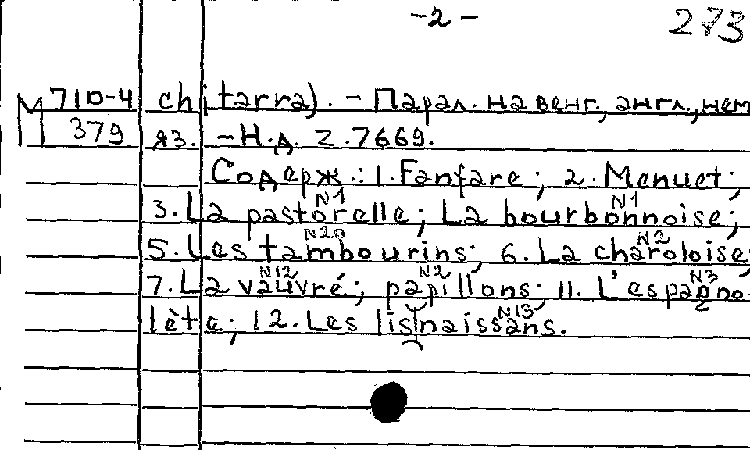 -2- 273
М 710-4 chitarra). - Парал. на венг., англ., нем
379 яз. - Н.д. Z.7669.
Содерж.: 1. Fanfare; 2. Menuet;
N1 N1
3. La pastorelle; La bourbonnoise;
N20 N2
5. Les tambourins; 6. La charoloise
N12 N2 N3
7. La vauvré; papillons; 11. L'espagno
N13
lète; 12. Les lis naissans.